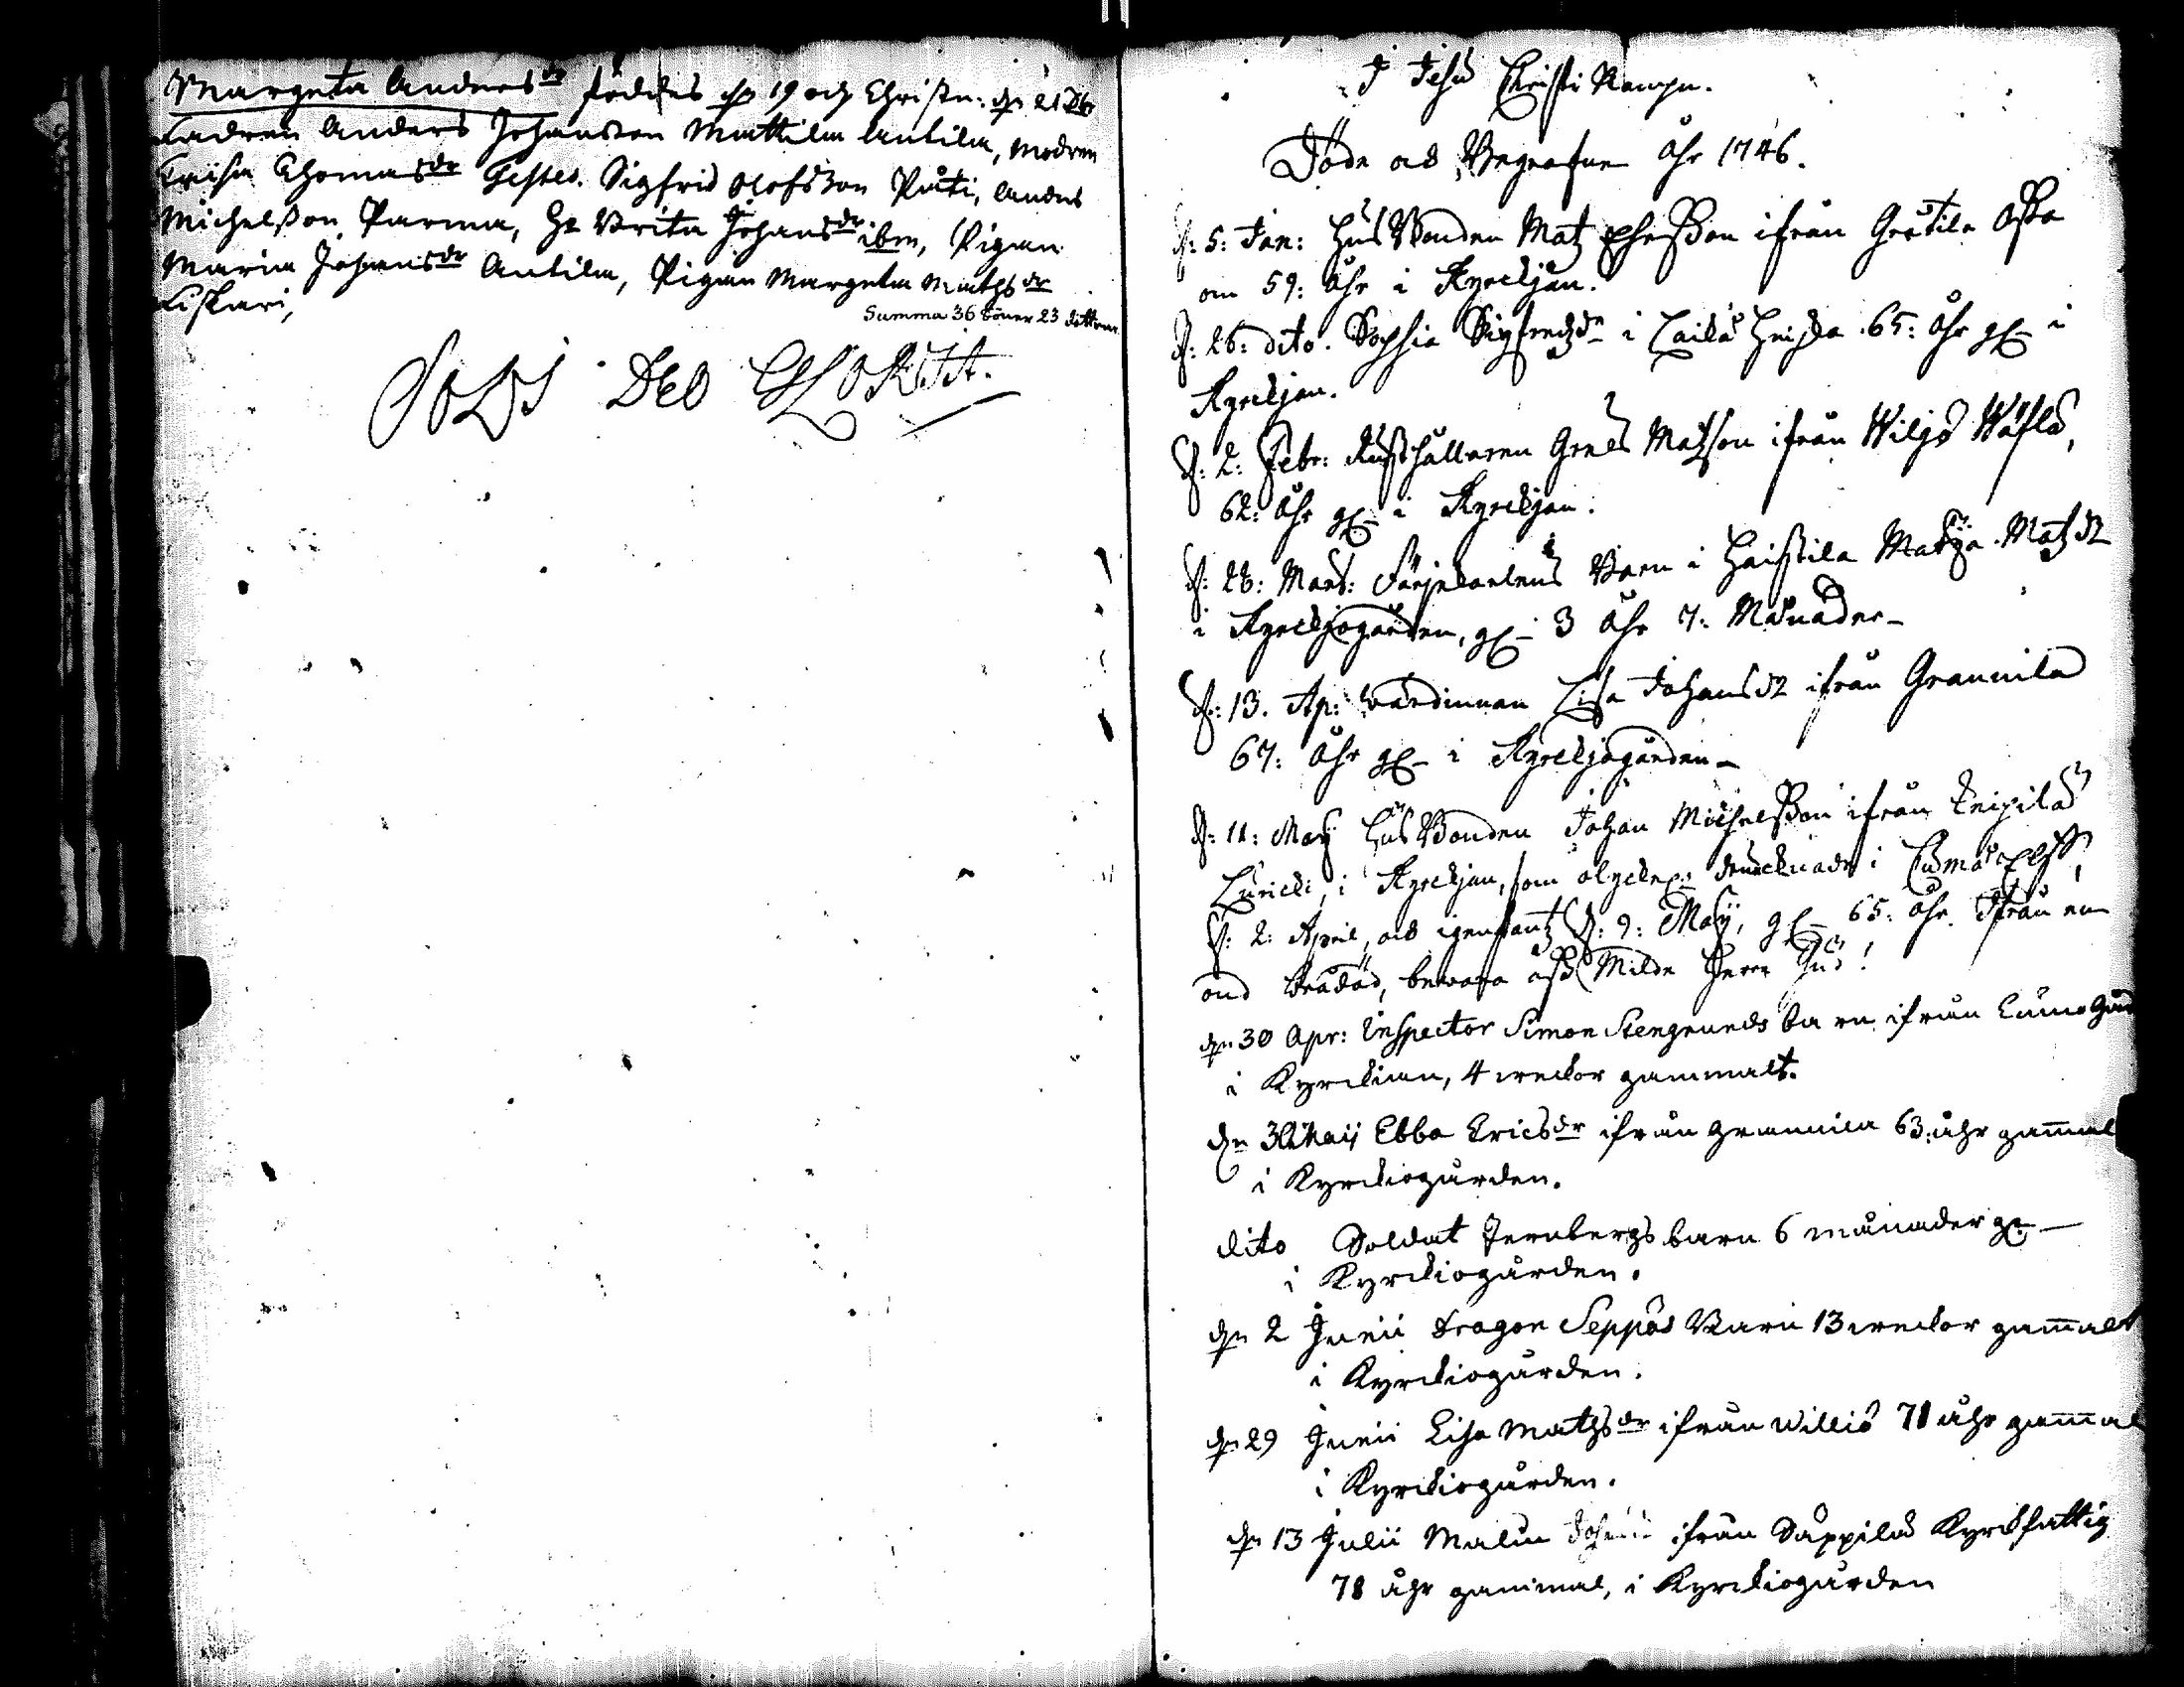 Margeta Andersdr föddes dn 19 och Christn: dn 21 Xbr
Fadren Anders Johansson Mattila Antila, modren
Lisa Thomasdr Testes. Sigfrid Olofsson Påti, Anders
Michelsson Parma, H: Brita Johansdr ibm, Pigan
Maria Johansdr Antila, Pigan Margeta Mathsdr
Liskari,
Summa 36 söner 23 dottrar
SOLI DEO GLORIA.
I Jesu Christi Nampn.
Döde och Begrafne Åhr 1746.
d: 5: Jan: Hus Bonden Matz ifrån
om 59: Åhr i Kyrckjan.
d: 26: dito. Sophia Sigfredzdr i Laila Heicka 65: Åhr gl- i
Kyrckjan.
d: 2: Febr: Rusthållaren Grels Matzson ifrån Wiljo
62: Åhr gl- i Kyrckjan.
d: 28: Mart: Färjekarlens Barn i Haistila Matzdr
i Kyrckjogården, gl- 3 Åhr 7: Månader-
d: 13. Ap: wärdinnan Lisa Johansdr ifrån Grannila
67: Åhr gl- i Kyrckjogården-
d: 11: Maij Hus Bonden Johan Michelsson ifrån
i Kyrckjan, som drucknade i Cumå Elf
d: 2: April, och igenfantz d: 9: Maij, gl- 65: Åhr. Ifrån en
ond bråddöd, bewara oss Milde Herre Gud!
dn 30 Apr: Inspector Simon Stengrunds barn ifrån Cumo Gård
i Kyrckian, 4 weckor gammalt.
dn Maij Ebba Ericsdr ifrån Grannila 63: åhr gammal
i Kyrckiogården.
dito Soldat Jernbergs barn 6 månader gl-
i Kyrckiogården.
dn 2 Junii Dragon Seppäs Barn 13 weckor gammalt
i Kyrckiogården.
dn 29 Junii Lisa Mathsdr ifrån Willio 71 åhr gammal
i Kyrckiogården.
dn 13 Julii Malin ifrån Säppilä Kyrckfattig
78 åhr gammal, i Kyrckiogården